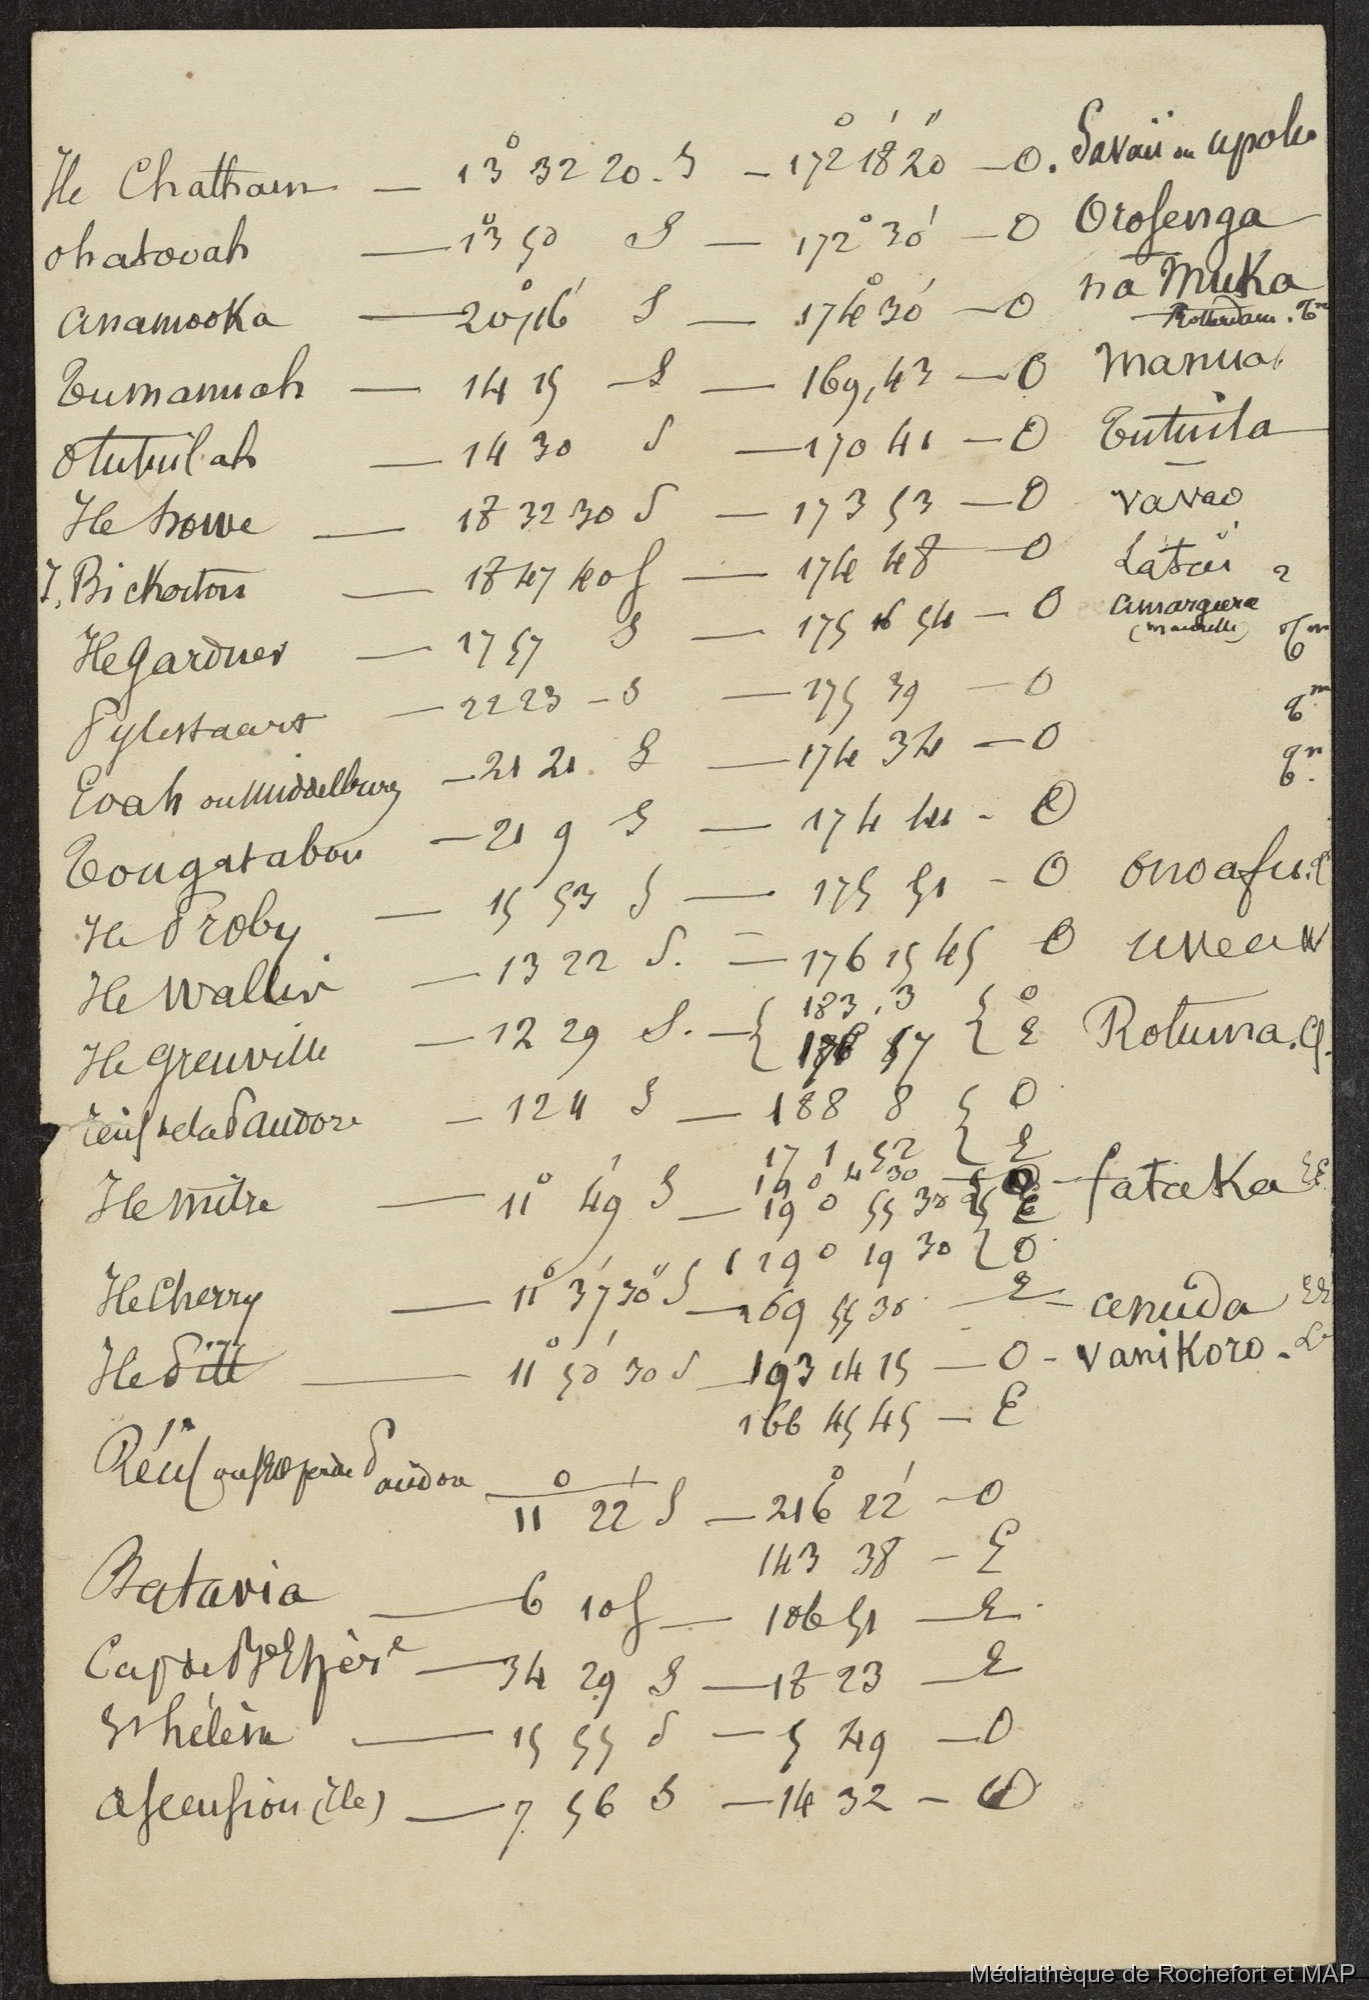 Ile Chatham — 13° 32 20 . S — 172° 18' 20" — O. Savaii ou upolu
ohatooah — 13° 50 S — 172° 30' — O Orosenga
anamooka — 20° 16' S — 174° 30' — O na Muka
Rotterdam .
Tumanuah — 14 15 — S — 169, 43 — O Manua
Otutuilah — 14 30 S — 170 41 — O Tutuila
Ile howe — 18 32 30 S — 173 53 — O vavao
I. Bickerton — 18 47 40 S — 174 48 — O Latai 2
Ile Gardner — 17 57 S — 175 16 54 — O amargura
(maurelle)
Pylestaart — 22 23 — S — 175 39 — O
Eoah ou Middelburg — 21 21 S — 174 34 — O
Tongatabou — 21 9 S — 174 41 - O
Ile Proby — 15 53 S — 175 51 - O onoafu.
Ile Wallis — 13 22 S. — 176 15 45 O uvea W
Ile Grenville — 12 29 S. — { 183 . 3 { O
57 { E Rotuma.
Récif de la Pandore — 12 11 S — 188 8 { O
171 52 { E
190 4 30
Ile mitre — 11° 49' S — 190 55 30 E fataka
190 19 30 { O
Ile Cherry — 11° 37' 30" S — 169 55 30 — E — anuda
Ile Pitt — 11° 50' 30 S — 193 14 15 — O - vanikoro .
166 45 45 — E
Récif Pandora
11° 22' S — 216° 22' — O
143 38 — E
Batavia — 6 10 S — 106 51 — E .
Cap de Bne Espérce — 34 29 S — 18 23 — E
Ste hélène — 15 55 S — 5 49 — O
ascension (Ile) — 7 56 S — 14 32 — O
Médiathèque de Rochefort et MAP